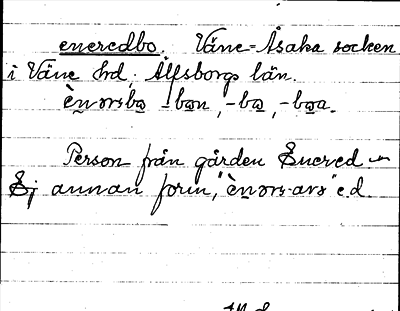 eneredbo. Väne-Åsaka socken
i Väne hd. Älfsborgs län.
ènərsbo -bon, -bo, -boa.
Person från gården Enered ~
Ej annan form, "ènərs-ars" e.d.